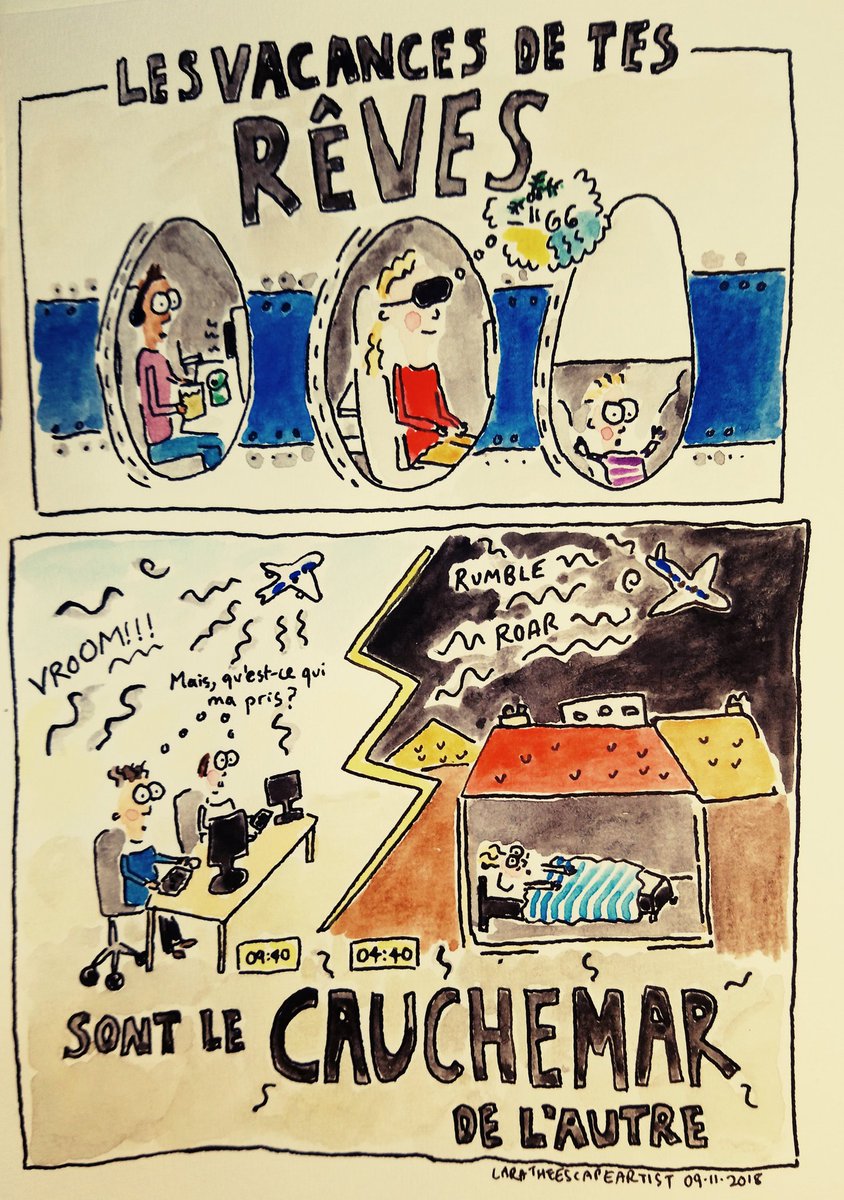 LES VACANCES DE TES
RÊVES
VROOM!!!
Mais, qu'est-ce qui
ma pris?
RUMBLE
ROAR
09:40
04:40
SONT LE CAUCHEMAR
DE L'AUTRE
LARATHEESCAPEARTIST 09·11·2018